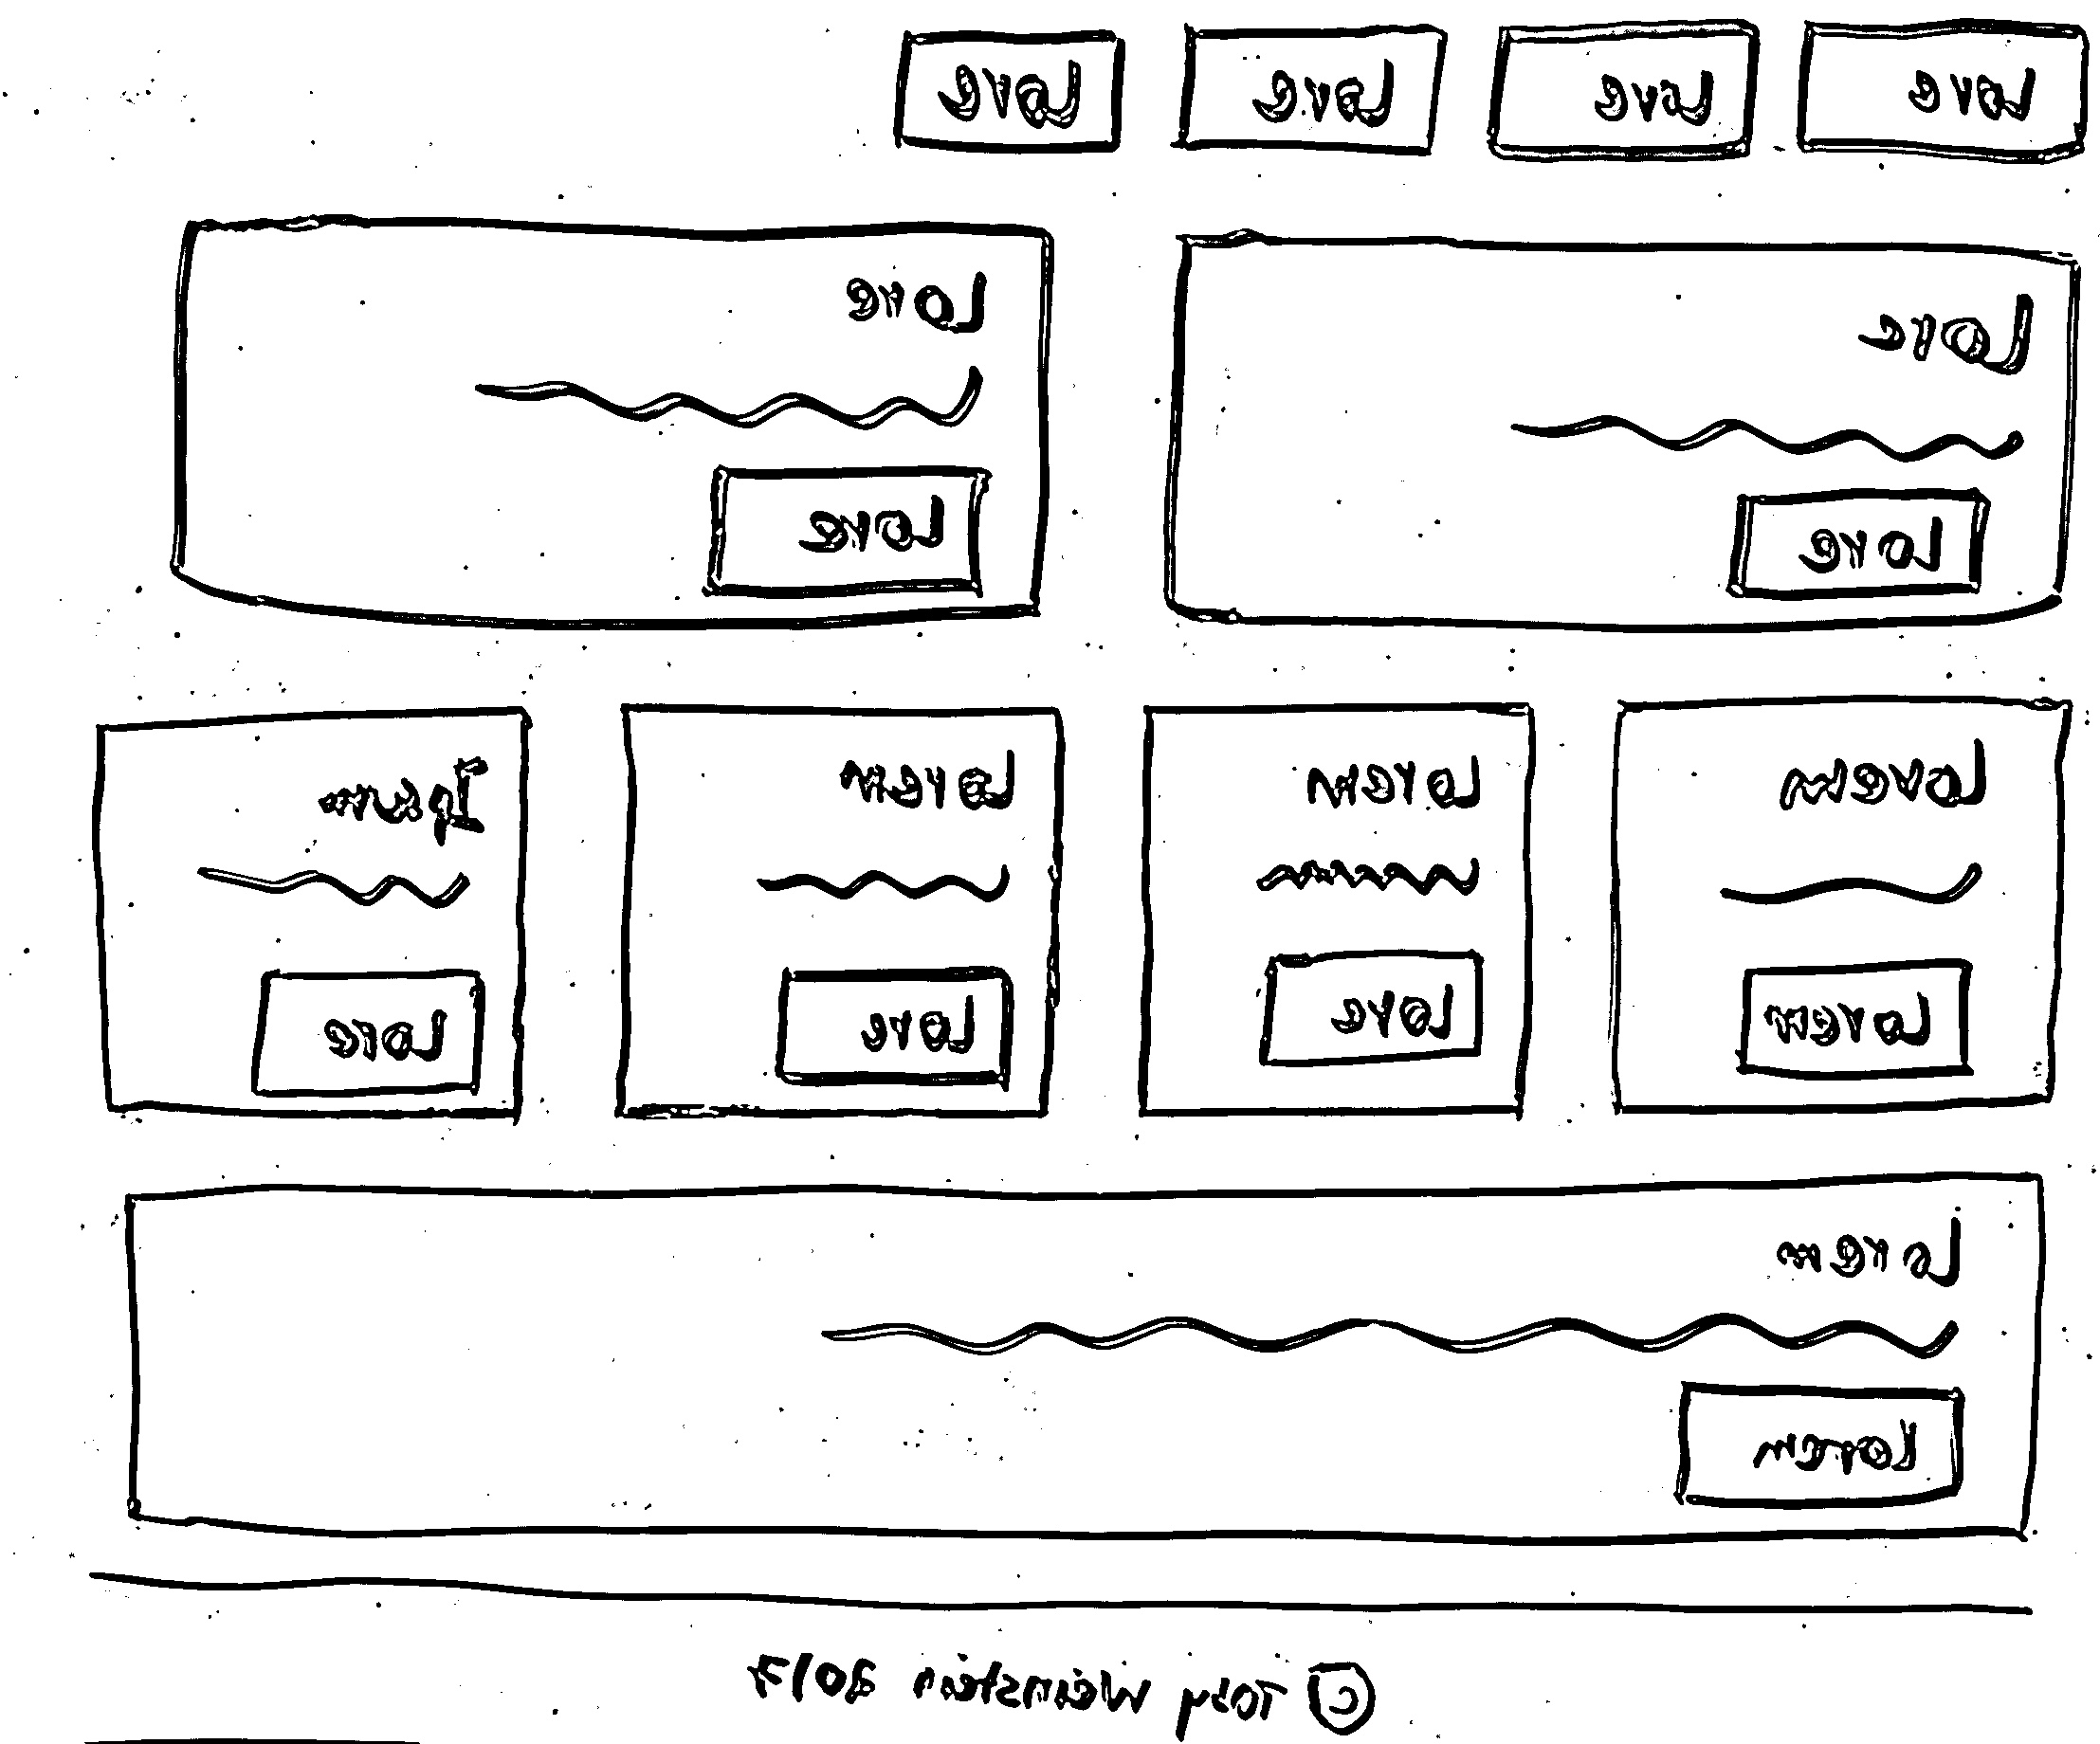 Lore Lore Lore Lore
Lore Lore
Lore Lore
Lorem Lorem Lorem Ipsum
Lorem Lore Lore Lore
Lorem
Lorem
© Toby Weinstein 2017